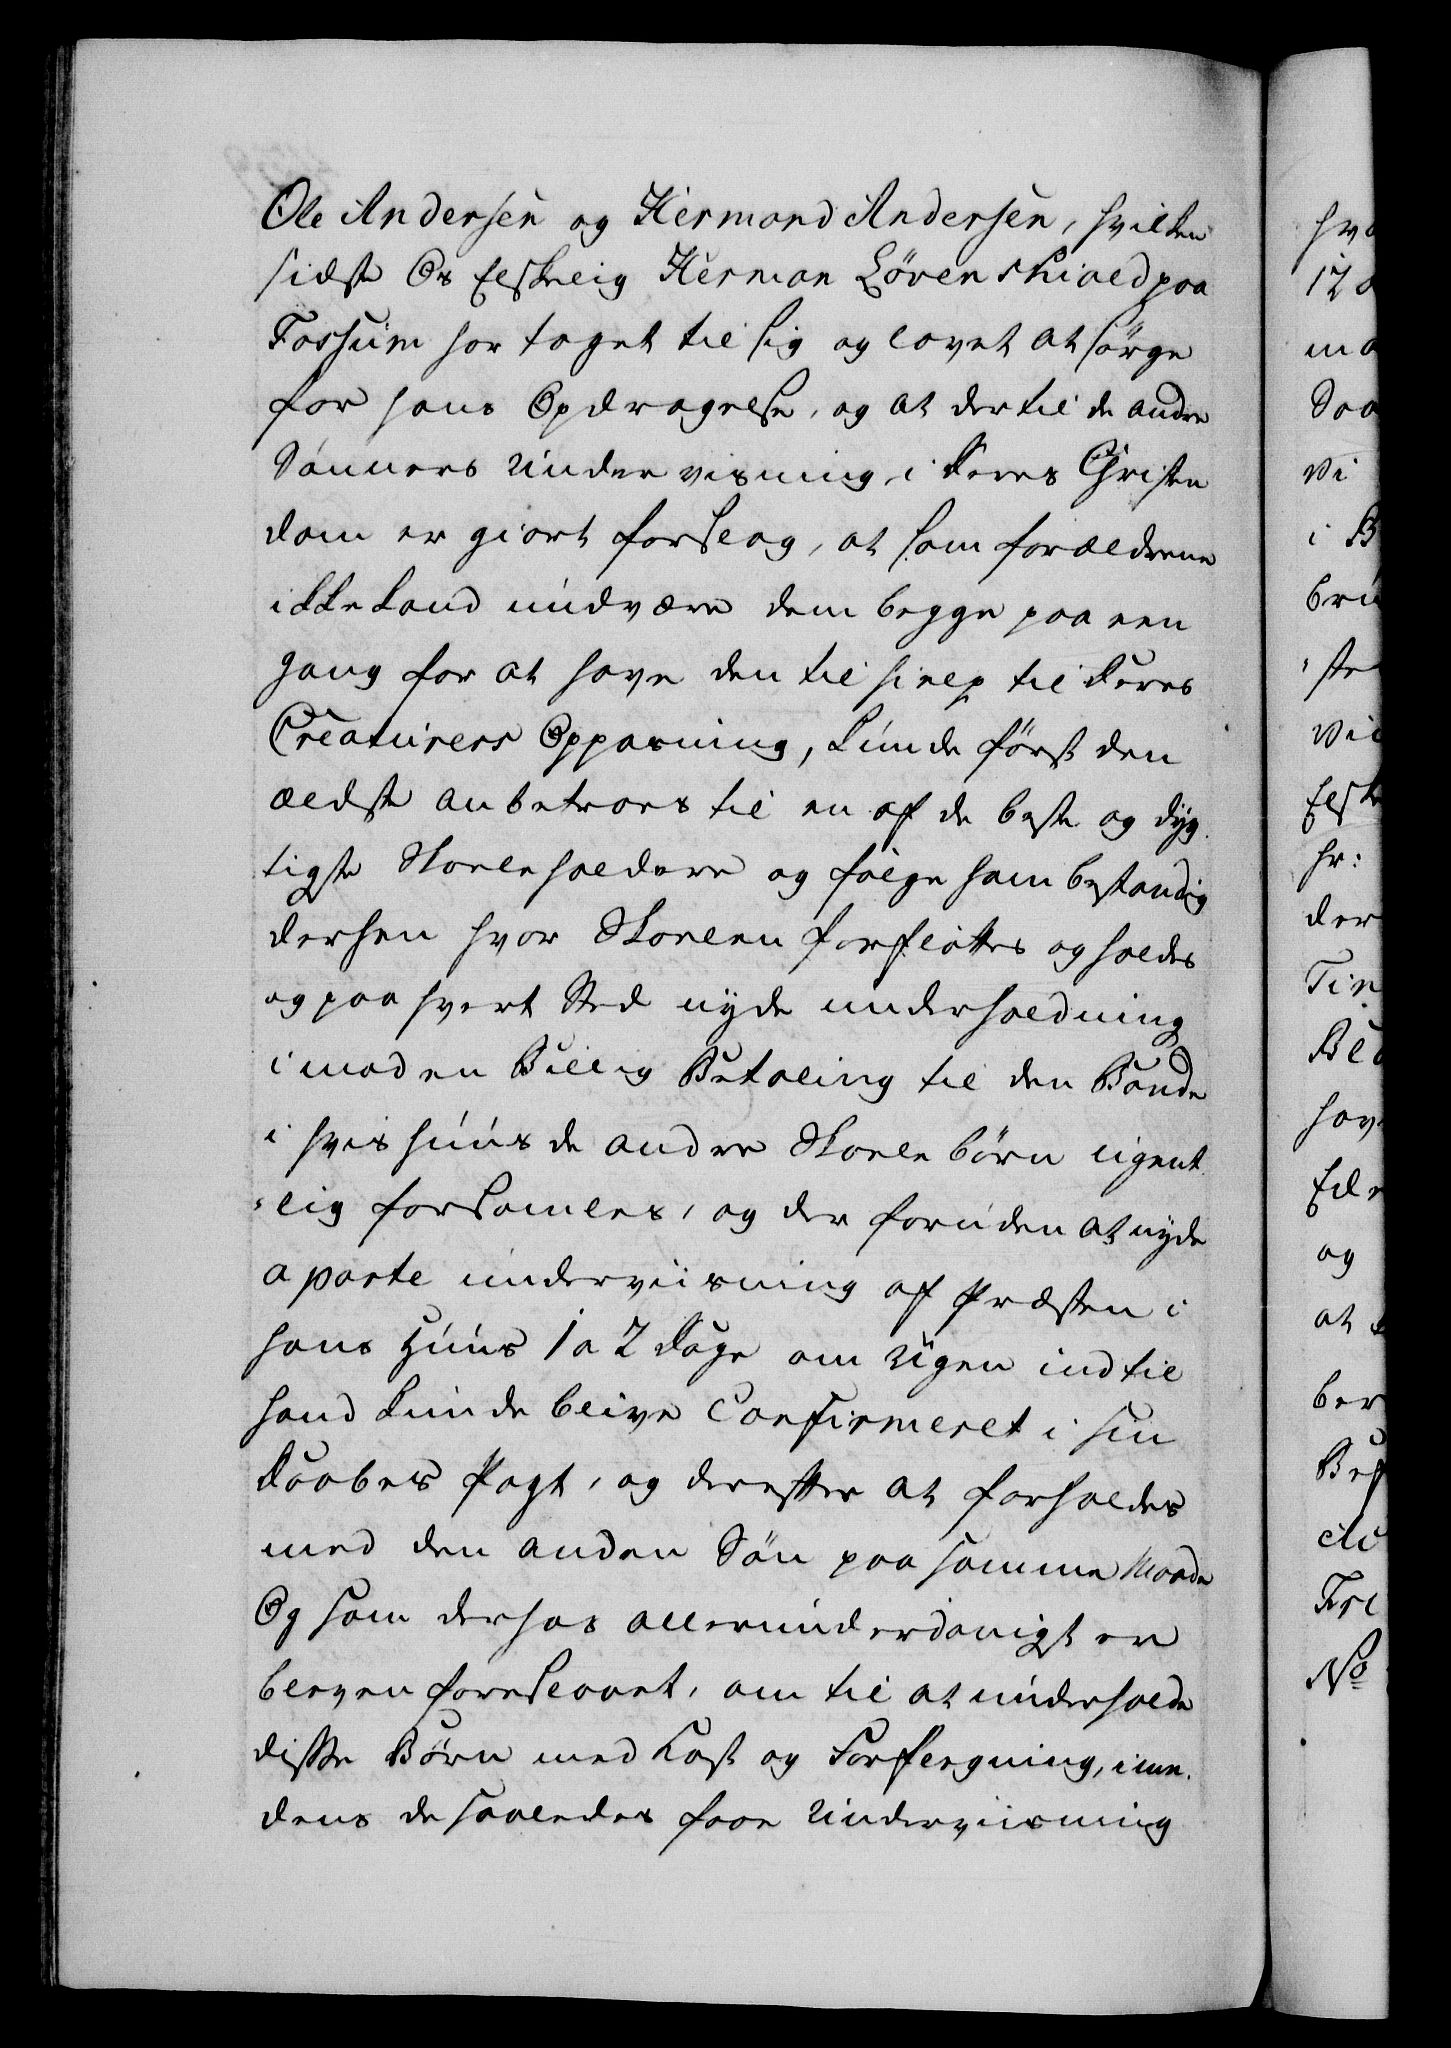 Ole Andersen og Hermand Andersen, hvilken
sidste Os Elskelig Herman Løvenskiold paa
Fossum har taget til sig og lovet at sørge
for hans Opdragelse, og at der til de andre
Sønners Undervisning, i deres Christen
dom er giort forslag, at som forældrene
ikke kand undvære dem begge paa een
gang for at have den til hielp til deres
Creaturers Oppasning, kunde først den
ældste anbetroes til en af de beste og dyg
tigste Skoeleholdere og følge ham bestandig
derhen hvor Skoelen forfløttes og holdes
og paa hvert Sted nyde underholdning
imod en Billig Betaling til den Bonde
i hvis huus de andre Skoele børn ligent
lig forsamles, og der foruden at nyde
aparte underviisning af Præsten i
hans Huus 1 a 2 Dage om Ugen indtil
hand kunde blive Confirmeret i sin
Daabes Pagt, og derefter at forholdes
med den anden Søn paa samme Maade
Og som derhos allerunderdanigst er
bleven foreslaaet, om til at underholde
disse Børn med Kost og Forflegning, imi-
dens de saaledes faae Underviisning
hva
ma
Saa
vi
i B
bru
ste
vii
Elske
hr:
der
Tin
hav
og
at
ber
Bef
No